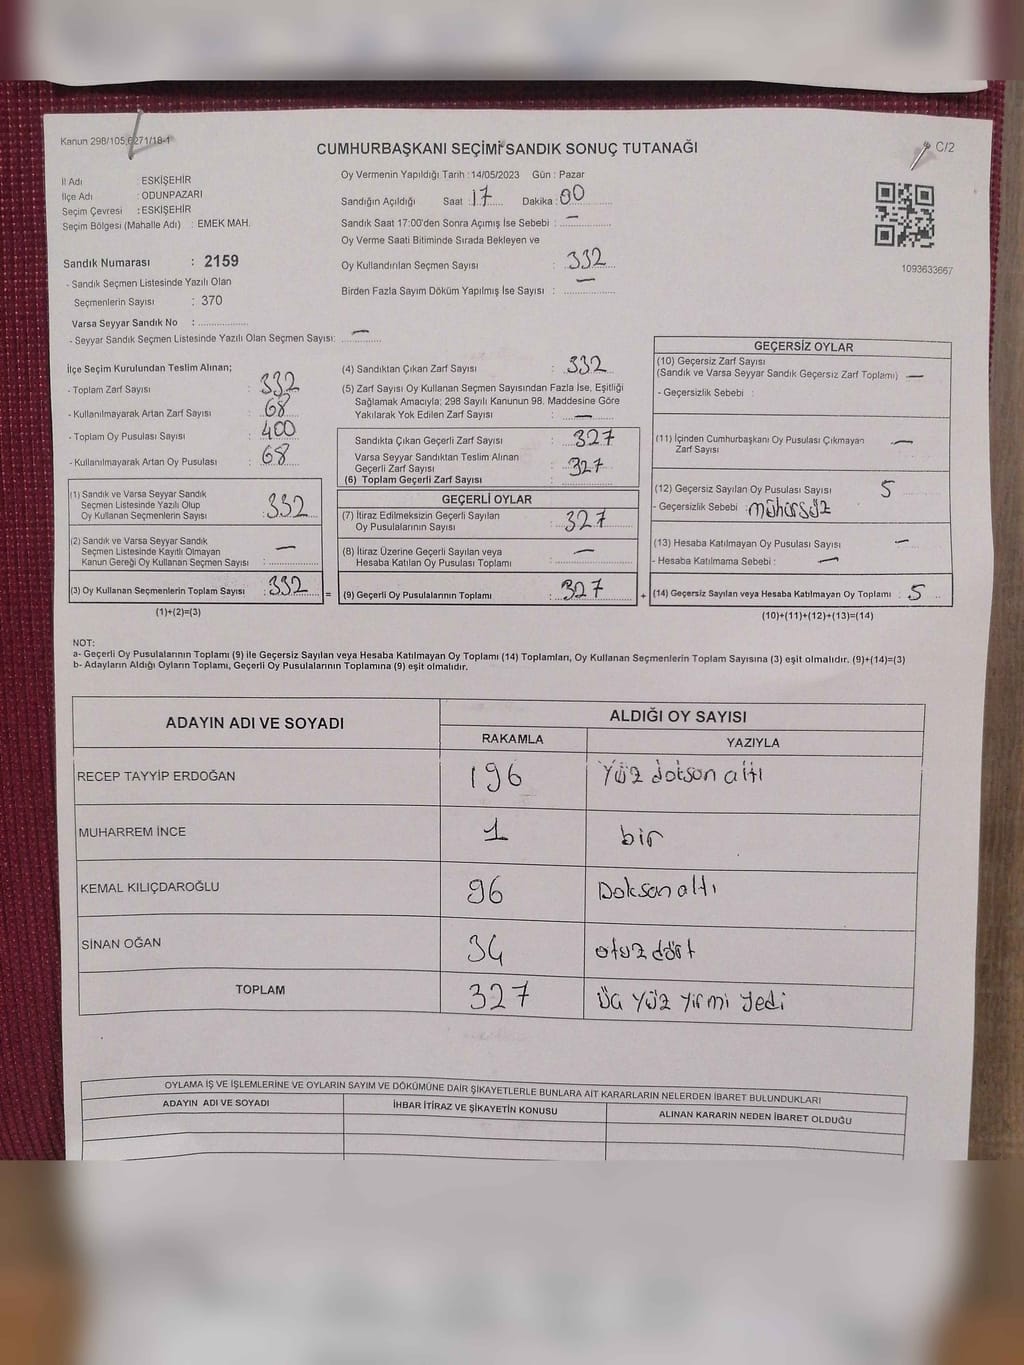 Kanun 298/105,6271/18-1
CUMHURBAŞKANI SEÇİMİ SANDIK SONUÇ TUTANAĞI
C/2
İl Adı : ESKİŞEHİR
İlçe Adı : ODUNPAZARI
Seçim Çevresi : ESKİŞEHİR
Seçim Bölgesi (Mahalle Adı) : EMEK MAH.
Sandık Numarası : 2159
- Sandık Seçmen Listesinde Yazılı Olan
Seçmenlerin Sayısı : 370
Varsa Seyyar Sandık No : ................
- Seyyar Sandık Seçmen Listesinde Yazılı Olan Seçmen Sayısı: —
Oy Vermenin Yapıldığı Tarih : 14/05/2023 Gün : Pazar
Sandığın Açıldığı Saat : 17 Dakika : 00
Sandık Saat 17:00'den Sonra Açımış İse Sebebi : —
Oy Verme Saati Bitiminde Sırada Bekleyen ve
Oy Kullandırılan Seçmen Sayısı : 332
Birden Fazla Sayım Döküm Yapılmış İse Sayısı : —
1093633667
İlçe Seçim Kurulundan Teslim Alınan;
- Toplam Zarf Sayısı : 332
- Kullanılmayarak Artan Zarf Sayısı : 68
- Toplam Oy Pusulası Sayısı : 400
- Kullanılmayarak Artan Oy Pusulası : 68
(1) Sandık ve Varsa Seyyar Sandık
Seçmen Listesinde Yazılı Olup
Oy Kullanan Seçmenlerin Sayısı : 332
(2) Sandık ve Varsa Seyyar Sandık
Seçmen Listesinde Kayıtlı Olmayan
Kanun Gereği Oy Kullanan Seçmen Sayısı : —
(3) Oy Kullanan Seçmenlerin Toplam Sayısı : 332 =
(1)+(2)=(3)
(4) Sandıktan Çıkan Zarf Sayısı : 332
(5) Zarf Sayısı Oy Kullanan Seçmen Sayısından Fazla İse, Eşitliği
Sağlamak Amacıyla; 298 Sayılı Kanunun 98. Maddesine Göre
Yakılarak Yok Edilen Zarf Sayısı : —
Sandıkta Çıkan Geçerli Zarf Sayısı : 327
Varsa Seyyar Sandıktan Teslim Alınan
Geçerli Zarf Sayısı : 327
(6) Toplam Geçerli Zarf Sayısı :
GEÇERLİ OYLAR
(7) İtiraz Edilmeksizin Geçerli Sayılan
Oy Pusulalarının Sayısı : 327
(8) İtiraz Üzerine Geçerli Sayılan veya
Hesaba Katılan Oy Pusulası Toplamı : —
(9) Geçerli Oy Pusulalarının Toplamı : 327 +
GEÇERSİZ OYLAR
(10) Geçersiz Zarf Sayısı
(Sandık ve Varsa Seyyar Sandık Geçersiz Zarf Toplamı) —
- Geçersizlik Sebebi :
(11) İçinden Cumhurbaşkanı Oy Pusulası Çıkmayan
Zarf Sayısı —
(12) Geçersiz Sayılan Oy Pusulası Sayısı 5
- Geçersizlik Sebebi : mühürsüz
(13) Hesaba Katılmayan Oy Pusulası Sayısı —
- Hesaba Katılmama Sebebi : —
(14) Geçersiz Sayılan veya Hesaba Katılmayan Oy Toplamı : 5
(10)+(11)+(12)+(13)=(14)
NOT:
a- Geçerli Oy Pusulalarının Toplamı (9) ile Geçersiz Sayılan veya Hesaba Katılmayan Oy Toplamı (14) Toplamları, Oy Kullanan Seçmenlerin Toplam Sayısına (3) eşit olmalıdır. (9)+(14)=(3)
b- Adayların Aldığı Oyların Toplamı, Geçerli Oy Pusulalarının Toplamına (9) eşit olmalıdır.
ADAYIN ADI VE SOYADI
ALDIĞI OY SAYISI
RAKAMLA YAZIYLA
RECEP TAYYİP ERDOĞAN 196 Yüz doksan altı
MUHARREM İNCE 1 bir
KEMAL KILIÇDAROĞLU 96 Doksan altı
SİNAN OĞAN 34 otuz dört
TOPLAM 327 üç yüz yirmi yedi
OYLAMA İŞ VE İŞLEMLERİNE VE OYLARIN SAYIM VE DÖKÜMÜNE DAİR ŞİKAYETLERLE BUNLARA AİT KARARLARIN NELERDEN İBARET BULUNDUKLARI
ADAYIN ADI VE SOYADI İHBAR İTİRAZ VE ŞİKAYETİN KONUSU ALINAN KARARIN NEDEN İBARET OLDUĞU